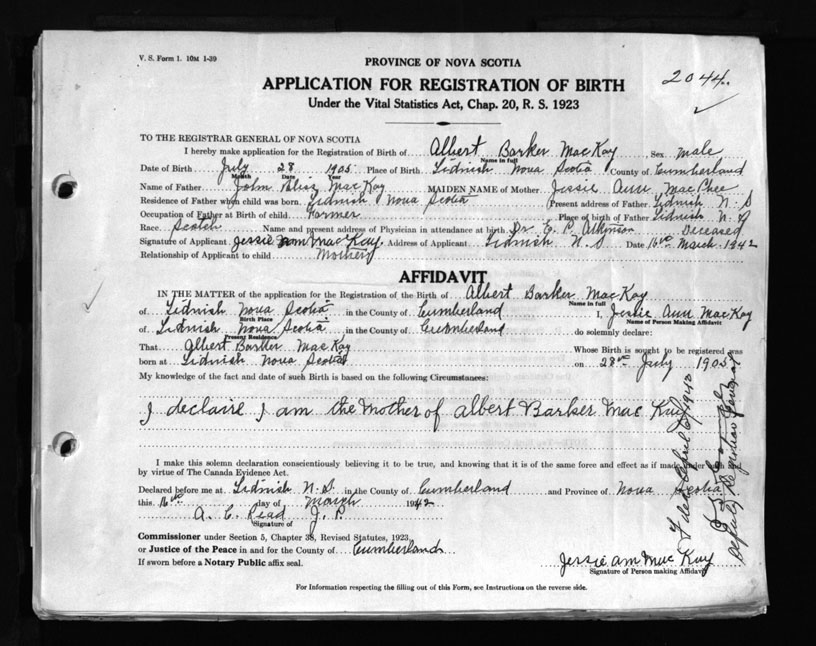 V. S. Form 1. 10M 1-39
PROVINCE OF NOVA SCOTIA
APPLICATION FOR REGISTRATION OF BIRTH
Under the Vital Statistics Act, Chap. 20, R. S. 1923
2044.
TO THE REGISTRAR GENERAL OF NOVA SCOTIA
I hereby make application for the Registration of Birth of Albert Barker MacKay Sex male
Name in full
Date of Birth July 28 1905 Place of Birth Tidnish Nova Scotia County of Cumberland
Month Date Year
Name of Father John MacKay MAIDEN NAME of Mother Jessie Ann
Residence of Father when child was born. Tidnish Nova Scotia Present address of Father Tidnish N. S
Occupation of Father at Birth of child Farmer Place of birth of Father Tidnish N. S
Race Scotch Name and present address of Physician in attendance at birth Dr. E. P. Atkinson Deceased
Signature of Applicant Jessie Ann MacKay Address of Applicant Tidnish N. S Date 16th March 1942
Relationship of Applicant to child Mother
AFFIDAVIT
IN THE MATTER of the application for the Registration of the Birth of Albert Barker MacKay
Name in full
of Tidnish Nova Scotia in the County of Cumberland I, Jessie Ann MacKay
Birth Place Name of Person Making Affidavit
of Tidnish Nova Scotia in the County of Cumberland do solemnly declare:
Present Residence
That Albert Barker MacKay Whose Birth is sought to be registered was
born at Tidnish Nova Scotia on 28th July 1905
My knowledge of the fact and date of such Birth is based on the following Circumstances:
I declaire I am the Mother of Albert Barker Mac Kay
I make this solemn declaration conscientiously believing it to be true, and knowing that it is of the same force and effect as if made under oath
by virtue of The Canada Evidence Act.
Declared before me at Tidnish N. S. in the County of Cumberland and Province of Nova Scotia
this 16th day of March 1942
A. E. Read J. P.
Signature of
Commissioner under Section 5, Chapter 38, Revised Statutes, 1923.
or Justice of the Peace in and for the County of Cumberland
If sworn before a Notary Public affix seal.
Jessie Ann Mac Kay
Signature of Person making Affidavit
For Information respecting the filling out of this Form, see Instructions on the reverse side.
Filed April 1942
Deputy Registrar General